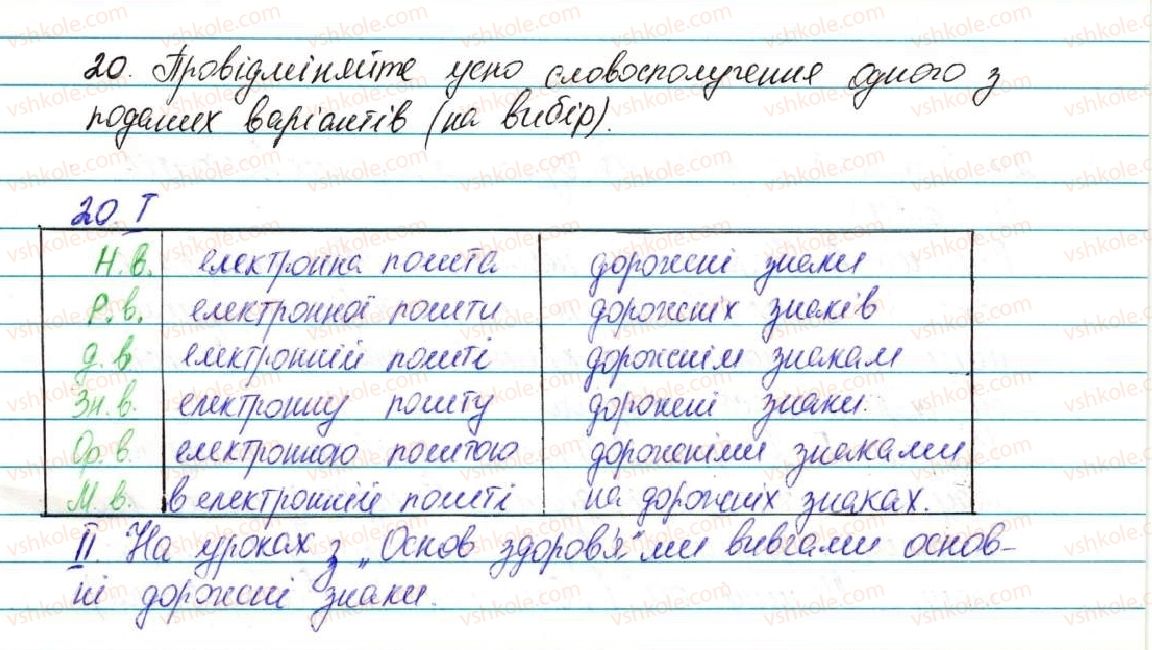 20. Провідміняйте усно словосполучення одного з
поданих варіантів (на вибір).
20. I
Н.в. електронна пошта дорожні знаки
Р.в. електронної пошти дорожніх знаків
Д.в. електронній пошті дорожнім знакам
Зн.в. електронну пошту дорожні знаки
Ор.в. електронною поштою дорожніми знаками
М.в. в електронній пошті на дорожніх знаках.
II. На уроках з „Основ здоров'я" ми вивчали основ-
ні дорожні знаки.
vshkole.com